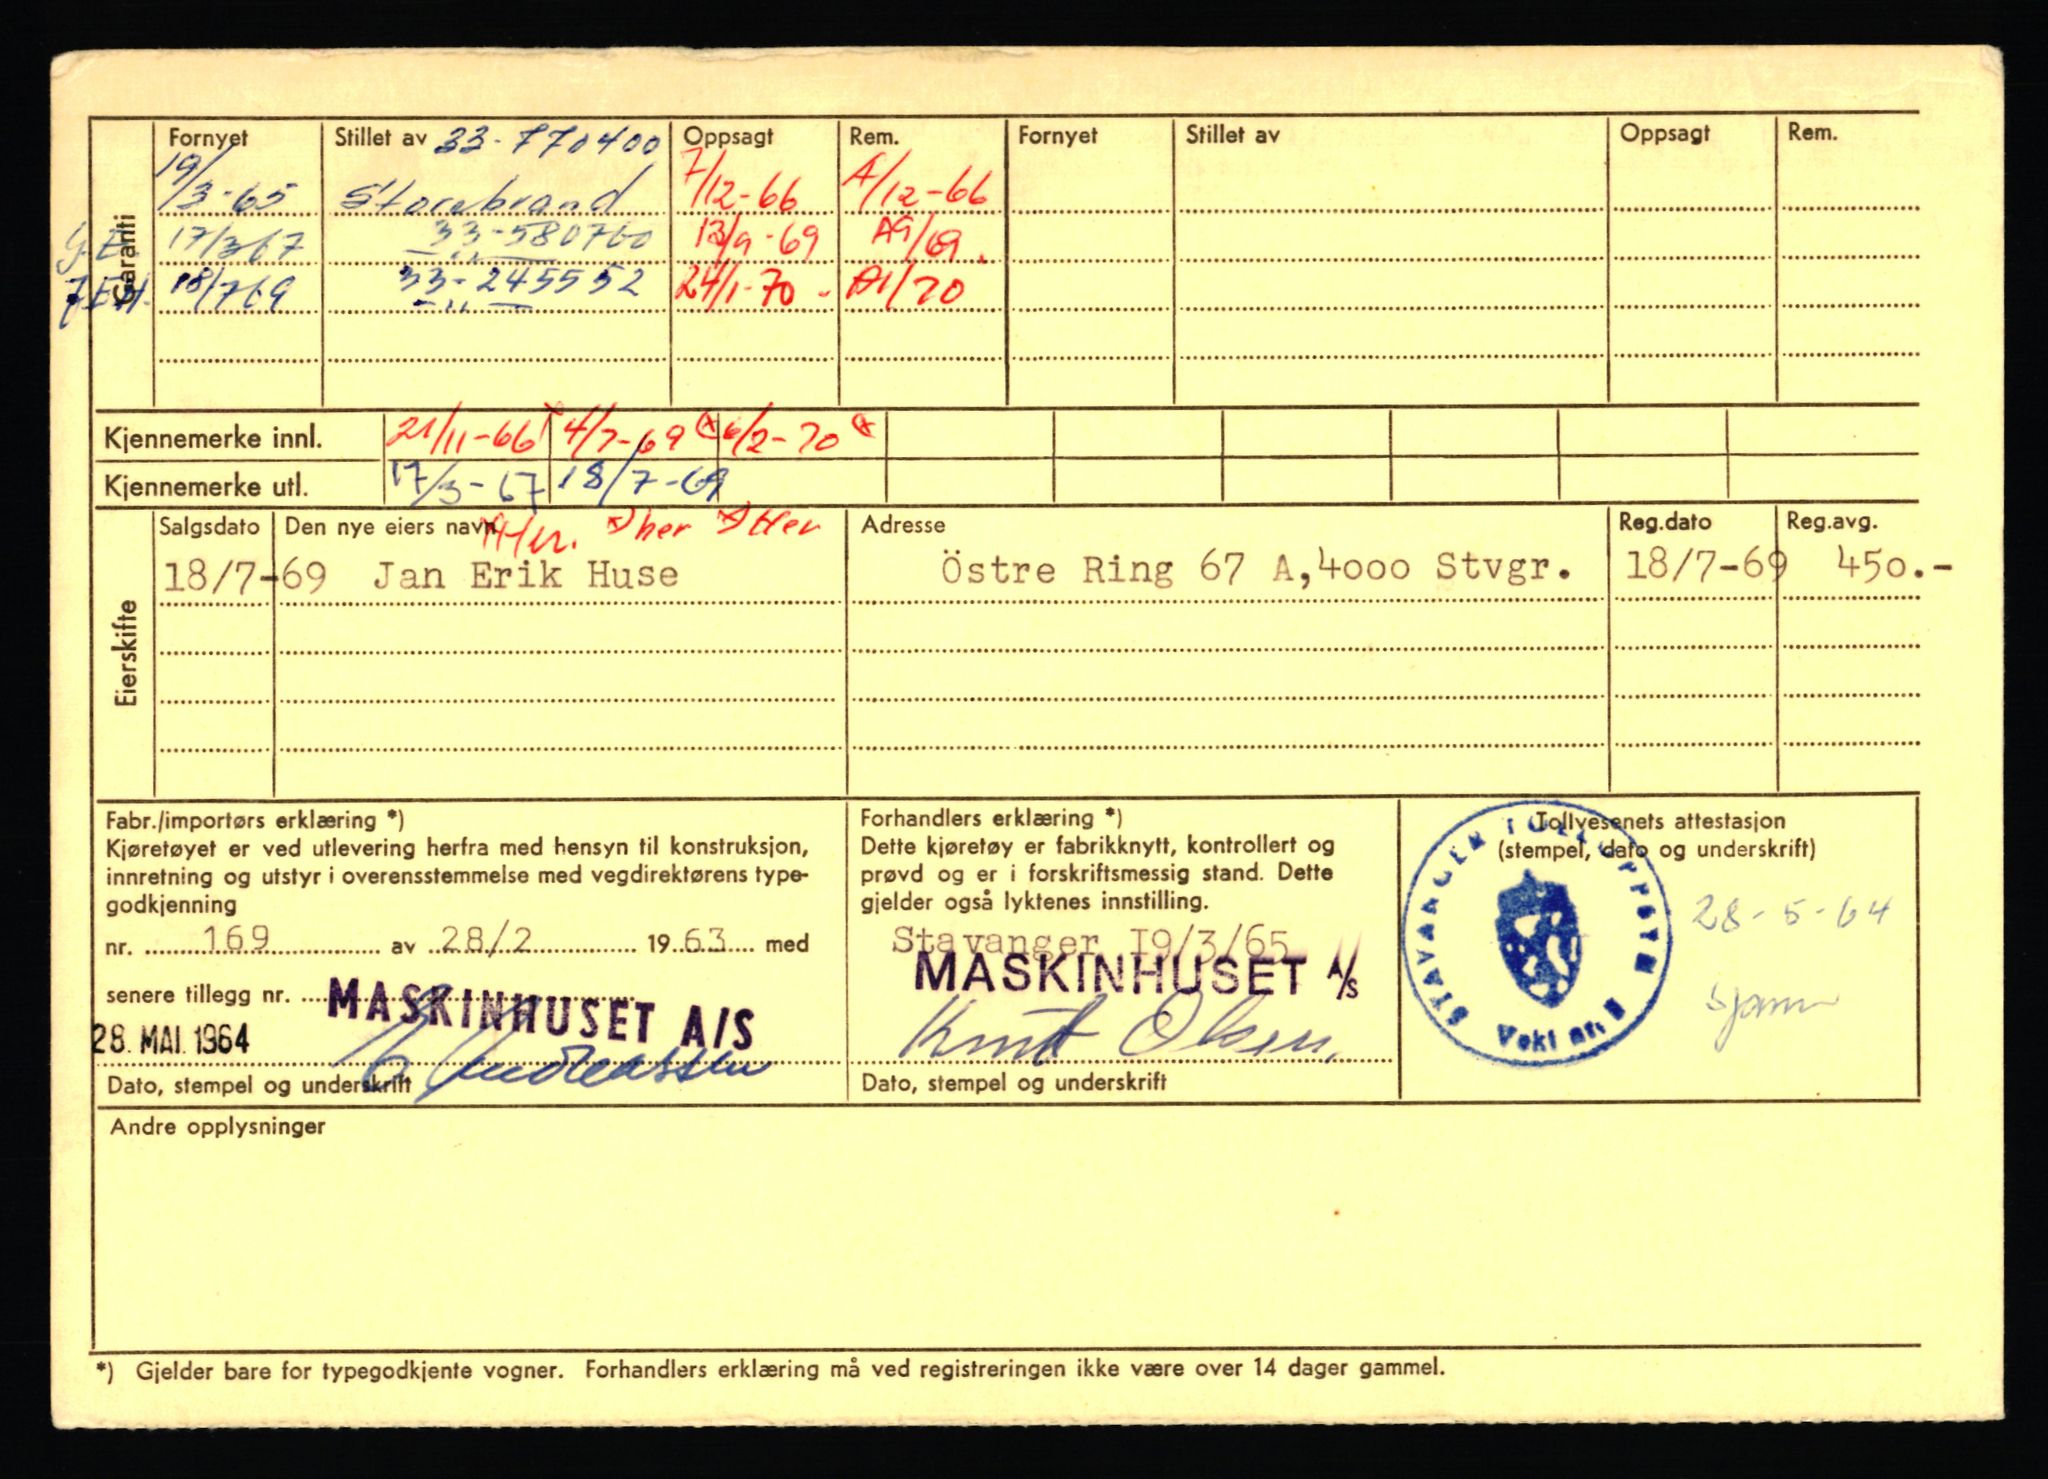 Garanti
Fornyet Stillet av 33-770400 Oppsagt Rem. Fornyet Stillet av Oppsagt Rem.
19/3-65 Storebrand 7/12-66 A/12-66
17/3 67 33-580760 13/9-69 A9/69.
J.E.H. 18/7 69 33-2455552 24/1-70 - A1/70
Kjennemerke innl. 21/11-66 4/7-69 6/2-70
Kjennemerke utl. 17/3-67 18/7-69
Eierskifte
Salgsdato Den nye eiers navn Adresse Reg.dato Reg.avg.
18/7-69 Jan Erik Huse Östre Ring 67 A,4000 Stvgr. 18/7-69 450.-
Fabr./importørs erklæring *)
Kjøretøyet er ved utlevering herfra med hensyn til konstruksjon,
innretning og utstyr i overensstemmelse med vegdirektørens type-
godkjenning
nr. 169 av 28/2 19 63 med
senere tillegg nr.
MASKINHUSET A/S
28. MAI. 1964
Andreassen
Dato, stempel og underskrift
Forhandlers erklæring *)
Dette kjøretøy er fabrikknytt, kontrollert og
prøvd og er i forskriftsmessig stand. Dette
gjelder også lyktenes innstilling.
Stavanger I9/3/65
MASKINHUSET A/S
Knut Olsen
Dato, stempel og underskrift
Tollvesenets attestasjon
(stempel, dato og underskrift)
STAVANGER TOLLOPPSYN
Vekt nr. 8
28-5-64
Andre opplysninger
*) Gjelder bare for typegodkjente vogner. Forhandlers erklæring må ved registreringen ikke være over 14 dager gammel.